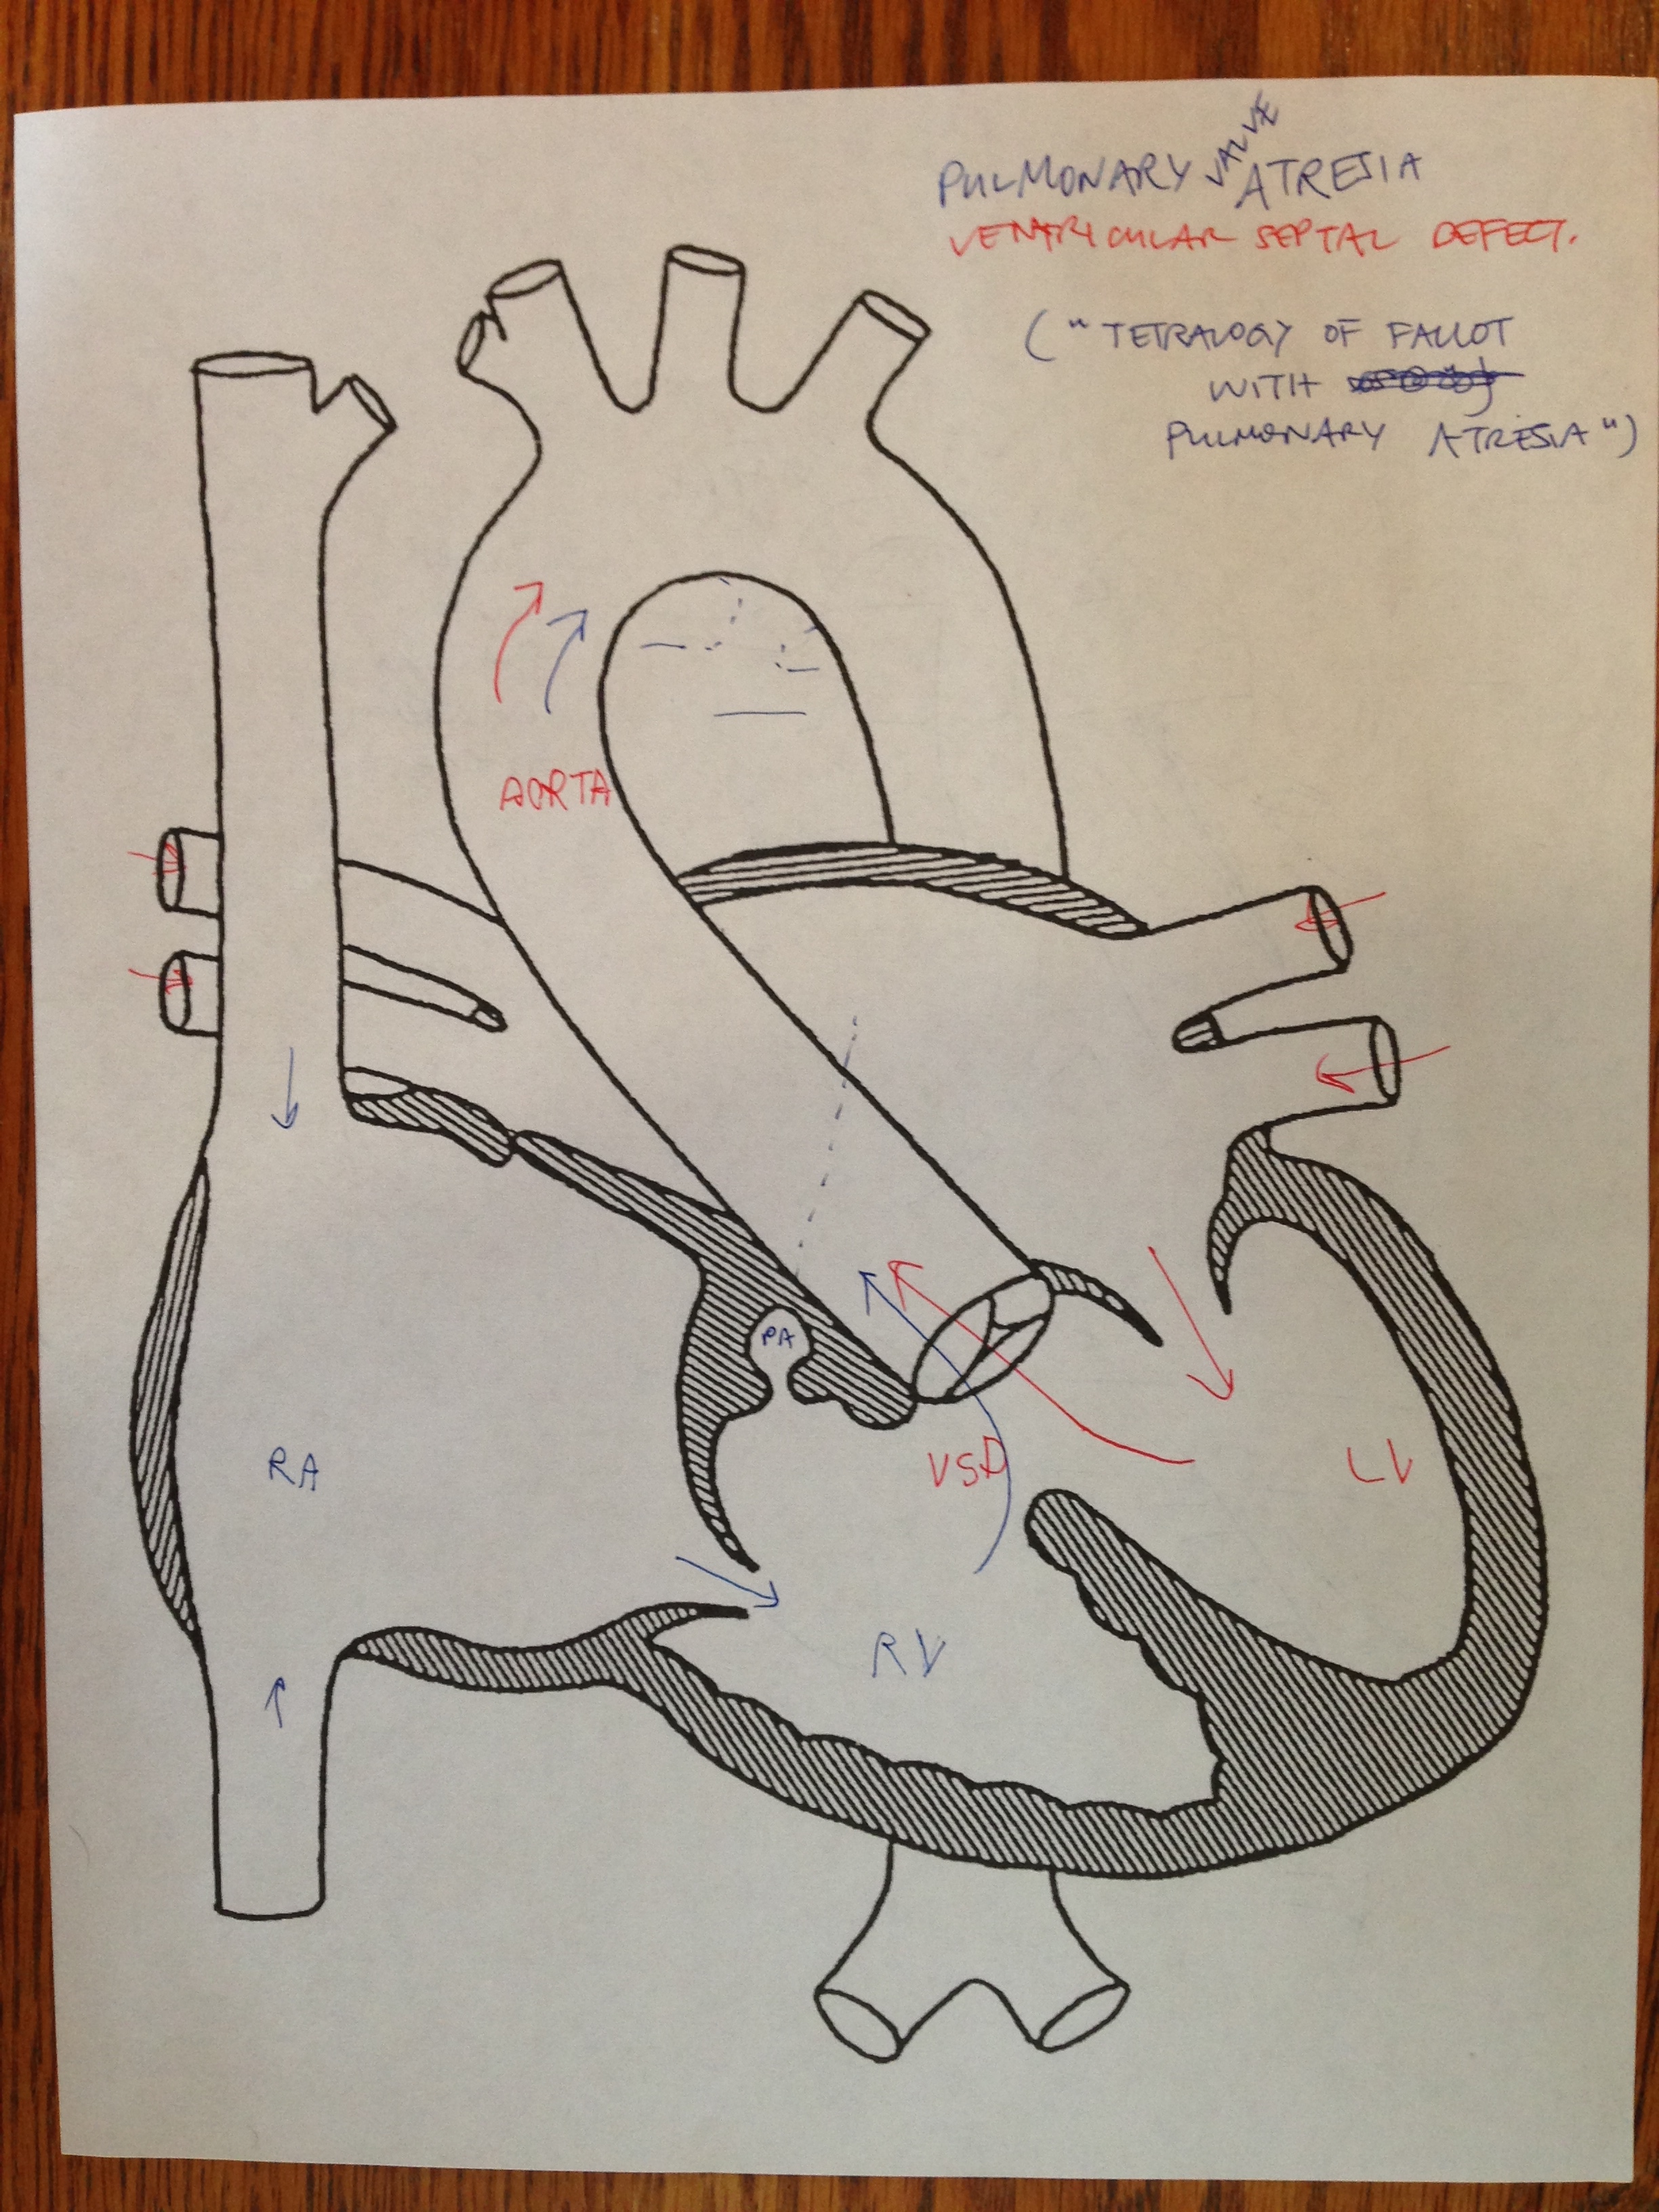 PULMONARY VALVE ATRESIA
VENTRICULAR SEPTAL DEFECT.
("TETRALOGY OF FALLOT
WITH
PULMONARY ATRESIA")
AORTA
PA
VSD
LV
RA
RV